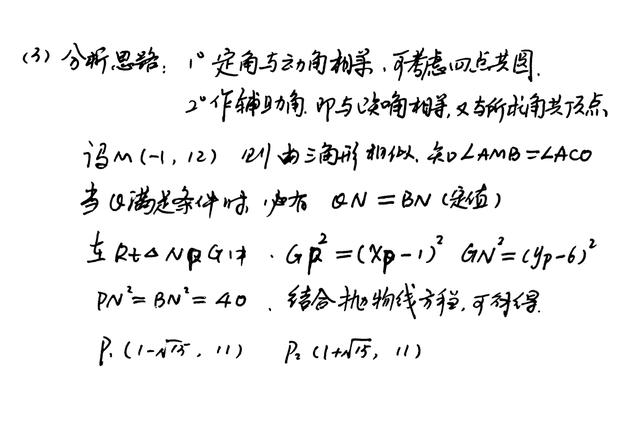 (3) 分析思路: 1° 定角与动角相等, 可考虑四点共圆.
2° 作辅助角. 即与已知角相等, 又与所求角共顶点.
设 M(-1, 12) 则由三角形相似. 知∠AMB=∠ACO
当Q满足条件时, 必有 QN=BN(定值)
在 Rt△NPG中. GP²=(Xp-1)² GN²=(yp-6)²
PN²=BN²=40. 结合抛物线方程, 可得
P₁(1-√15, 11) P₂(1+√15, 11)